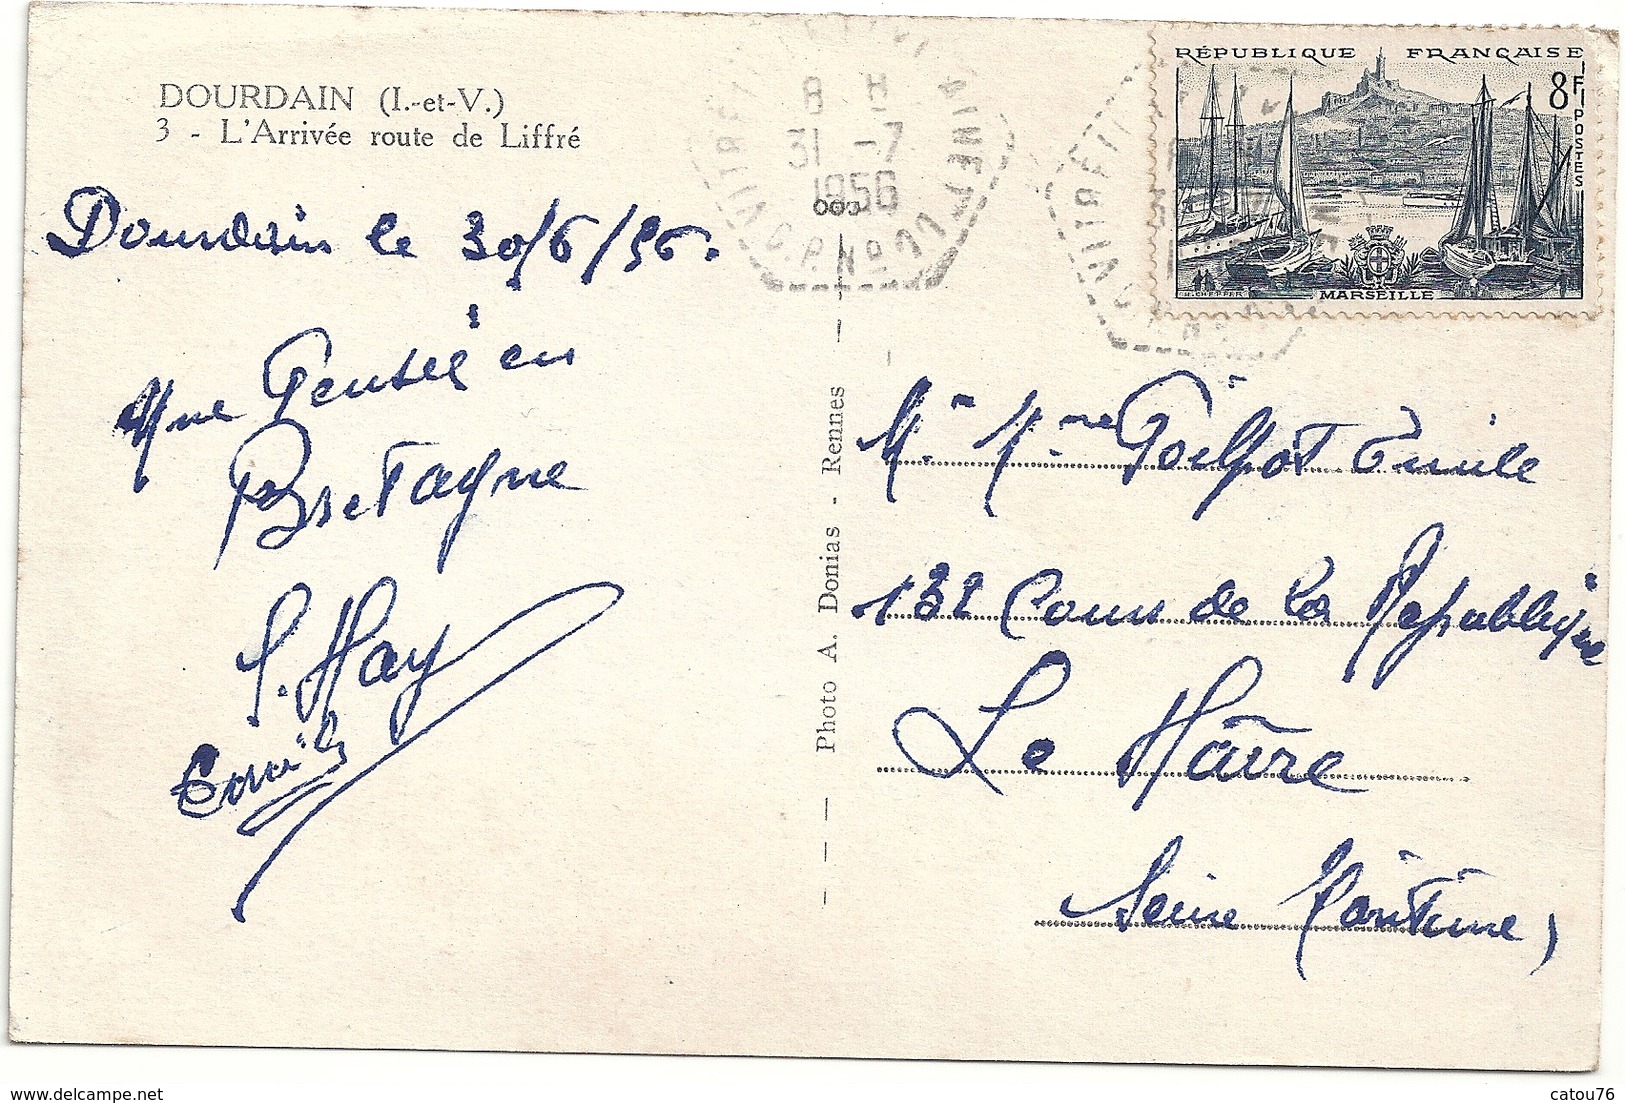 DOURDAIN (I.-et-V.)
3 - L'Arrivée route de Liffré
Dourdain le 30/6/56.
Une Pensée en
Bretagne
Hay
Emile
8 H
31 -7
1956
VITRE
ILLE ET VILAINE
C.P. No
RÉPUBLIQUE FRANÇAISE
8F
POSTES
MARSEILLE
Photo A. Donias - Rennes
Mr Mme Emile
132 Cours de la République
Le Havre
Seine Maritime,
catou76